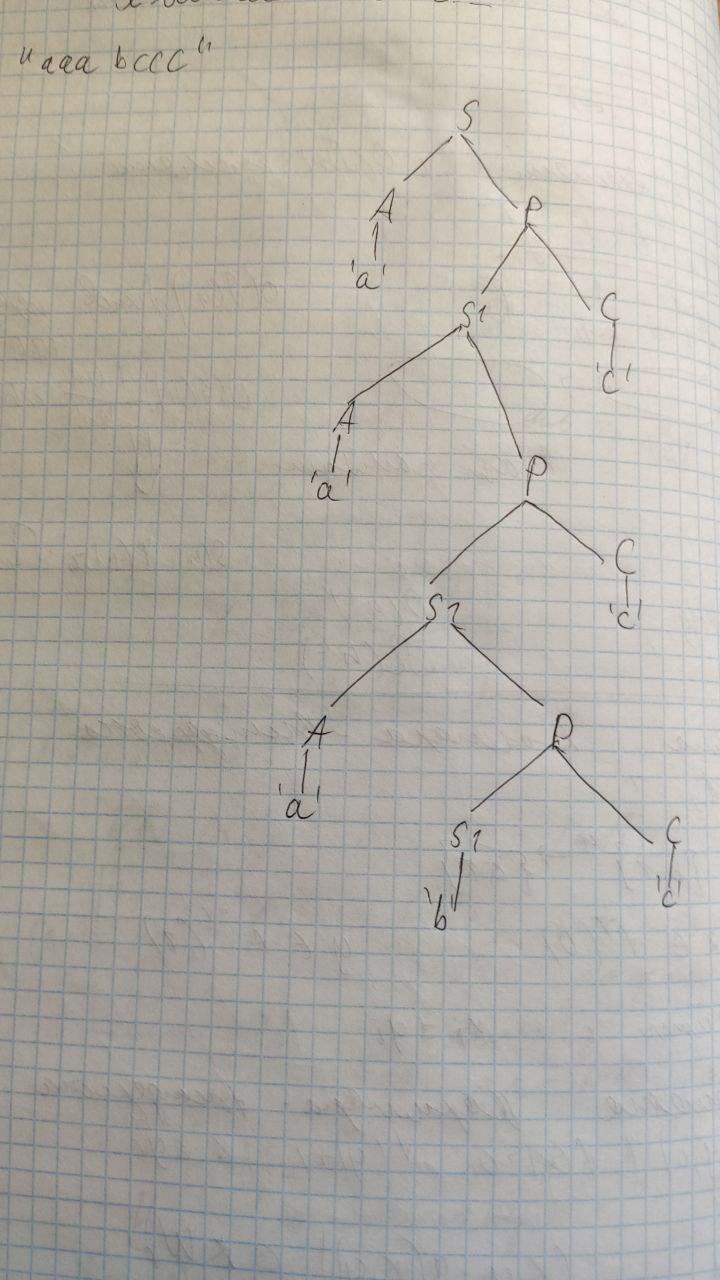 "aaa bccc"
S
A P
'a' S1 C
'c'
A
'a' P
C
S1 'c'
A P
'a' S1 C
'b' 'c'